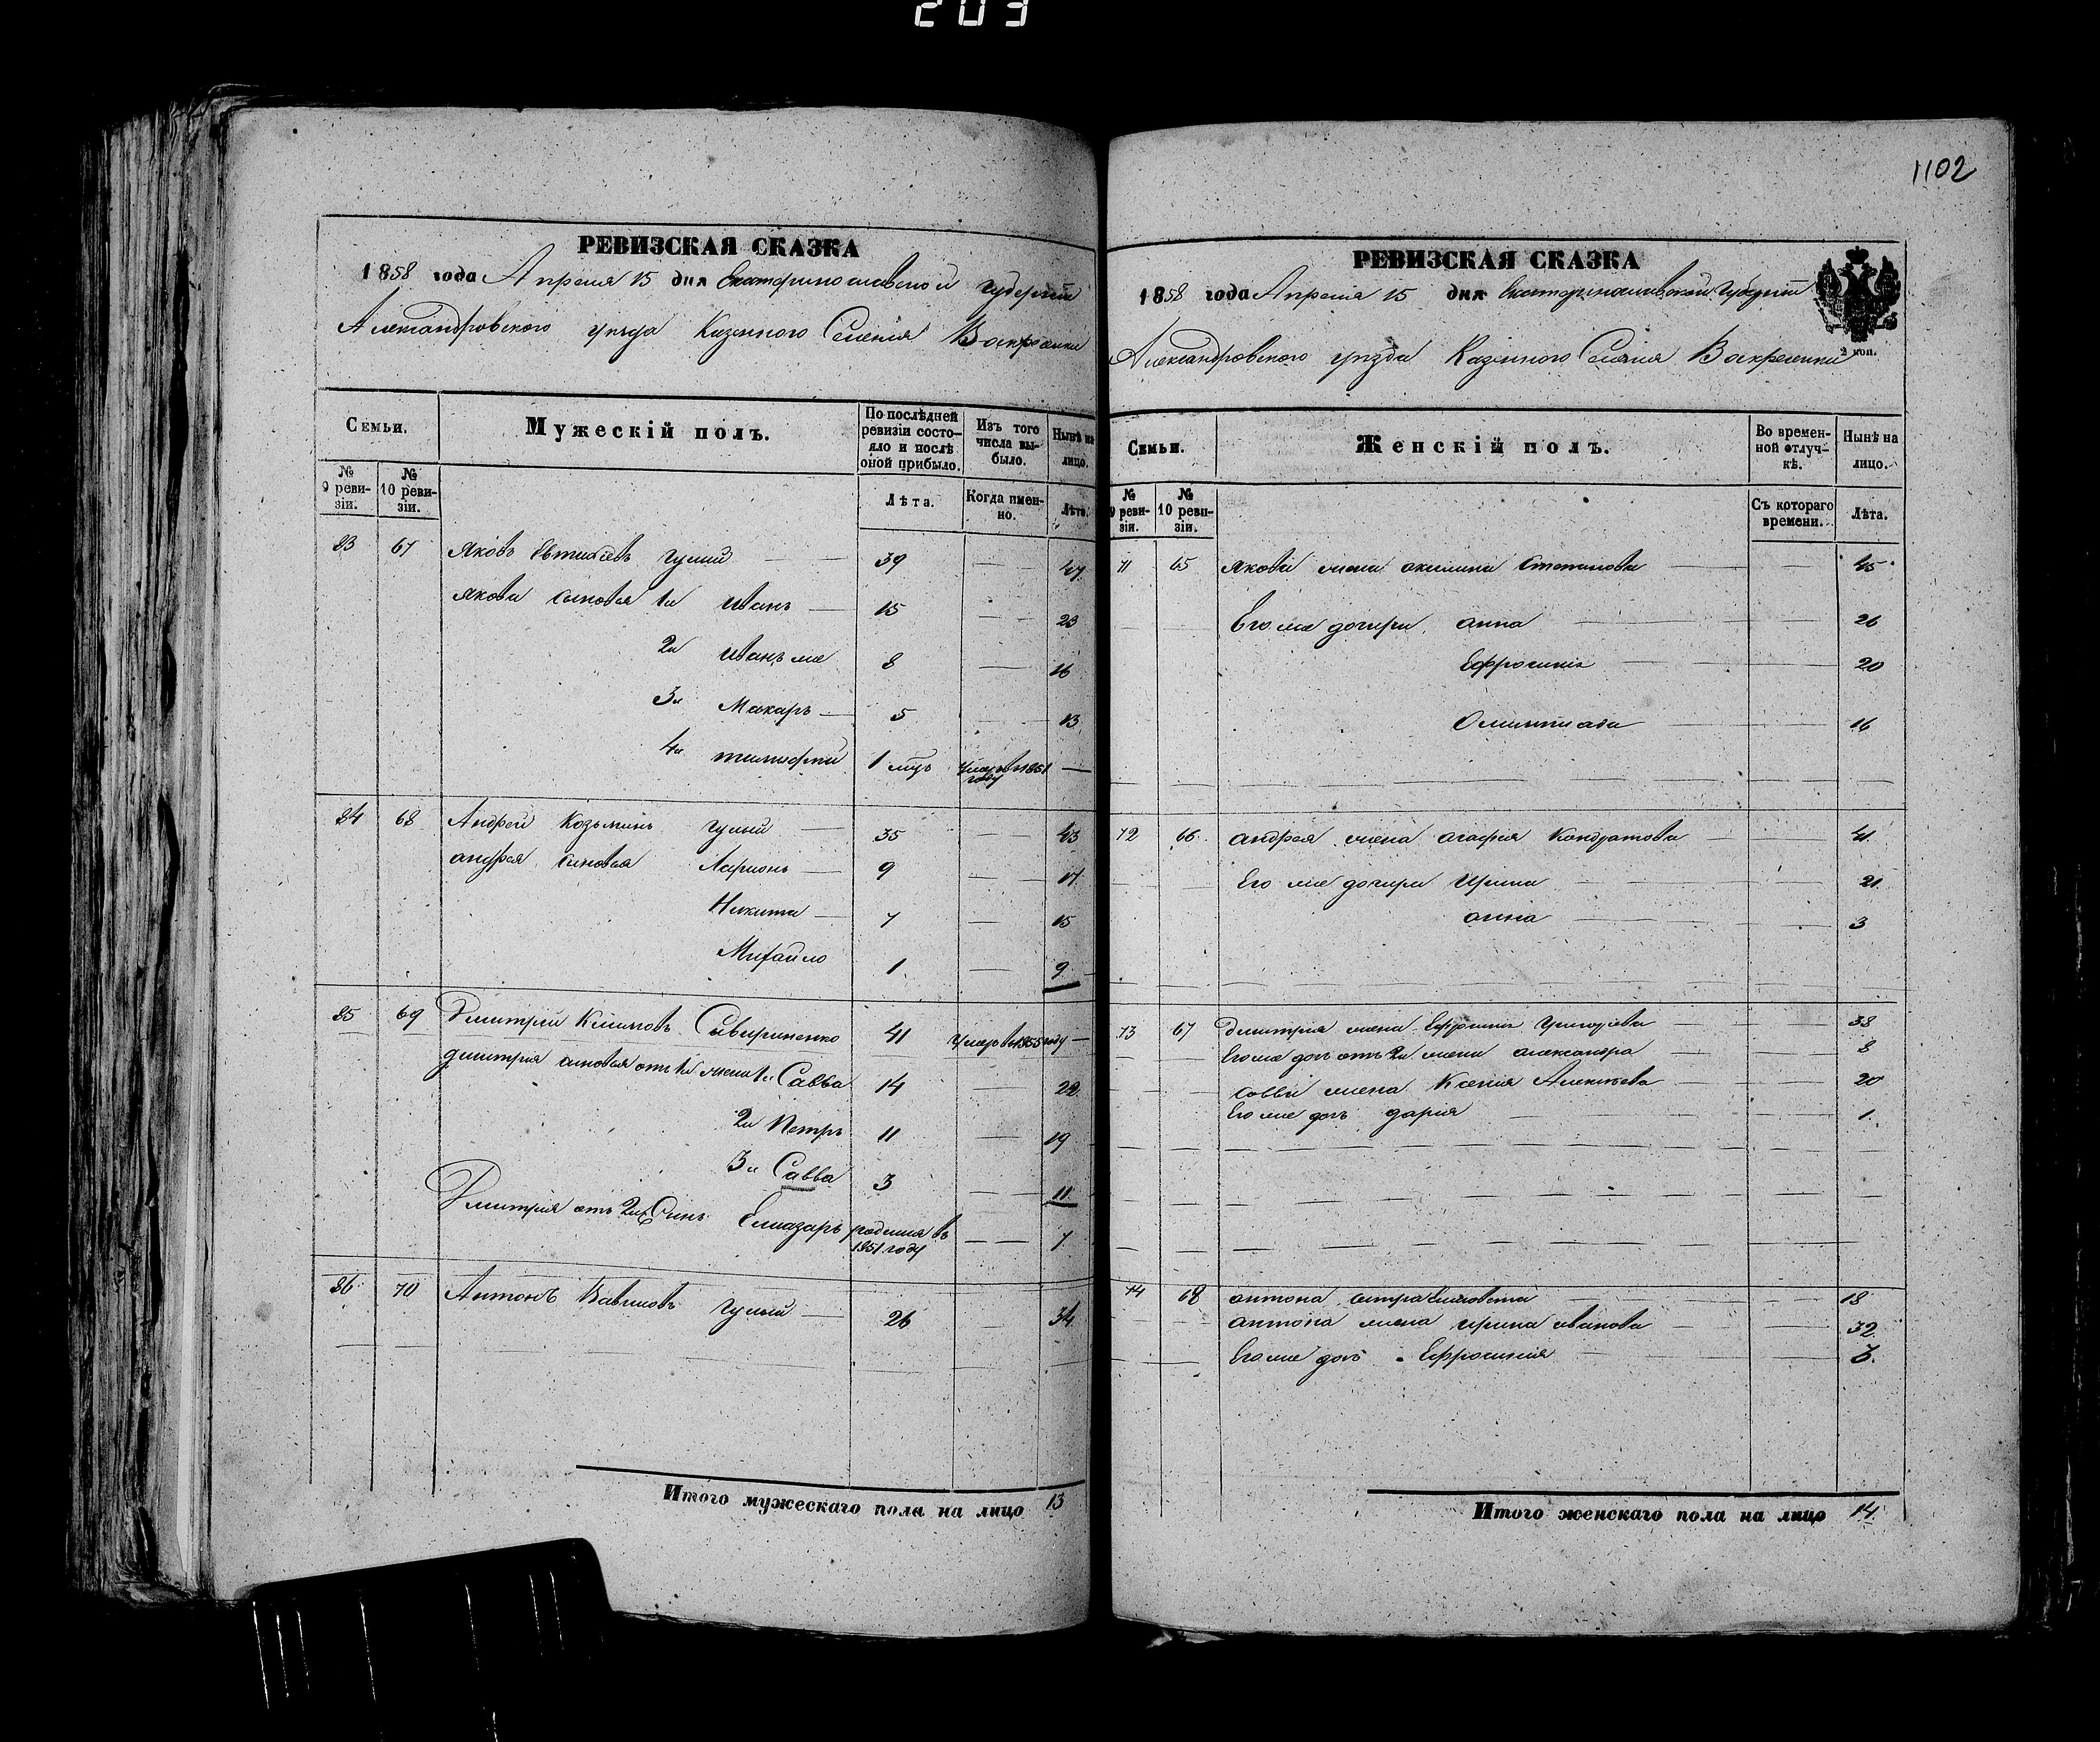 203
1102
РЕВИЗСКАЯ СКАЗКА
1858 года Апреля 15 дня Екатеринославской губернии
Александровского уезда Казенного Селения Воскресенки
Семьи.
Мужескій полъ.
По послѣдней ревизіи состояло и послѣ оной прибыло.
Изъ того числа выбыло.
Нынѣ на лицо.
№ 9 ревизіи.
№ 10 ревизіи.
Лѣта.
Когда именно.
Лѣта.
83 67 Яковъ Евтихіевъ Гулий 39 — 47
Якова сыновья 1й Иванъ — 15 — 23
2й Иванъ же 8 — 16
3й Макаръ — 5 — 13
4й Тимофей 1 мцъ Умеръ в 1851 году —
84 68 Андрей Козьминъ Гулий — 35 — 43
Андрея сыновья Ларионъ — 9 — 17
Никита — 7 — 15
Михайло 1 — 9
85 69 Дмитрий Климовъ Сывириненко 41 Умеръ в 1855 году —
Дмитрия сыновья отъ 1й жены 1й Савва 14 — 22
2й Петръ 11 — 19
3й Савва 3 — 11
Дмитрия отъ 2й Сынъ Елиазаръ родился въ 1851 году — 7
86 70 Антонъ Вавиловъ Гулий — 26 — 34
Итого мужескаго пола на лицо 13
РЕВИЗСКАЯ СКАЗКА
1858 года Апреля 15 дня Екатеринославской Губернии
Александровского уезда Казенного Селения Воскресенки
2 коп.
Семьи.
Женскій полъ.
Во временной отлучкѣ.
Нынѣ на лицо.
№ 9 ревизіи.
№ 10 ревизіи.
Съ котораго времени.
Лѣта.
71 65 Якова жена Акилина Степанова — 45
Его же дочери Анна — 26
Ефросиния — 20
Олимпиада — 16
72 66 Андрея жена Агафия Кондратова — 41
Его же дочери Ирина — 21
Анна — 3
73 67 Дмитрия жена Ефросиния Григорьева — 38
Его же дочь отъ 2й жены Александра — 8
Саввы жена Ксения Алексеева — 20
Его же дочь Дария — 1
74 68 Антона сестра — 18
Антона жена Ирина Иванова — 32
Его же дочь Ефросиния —
Итого женскаго пола на лицо 14